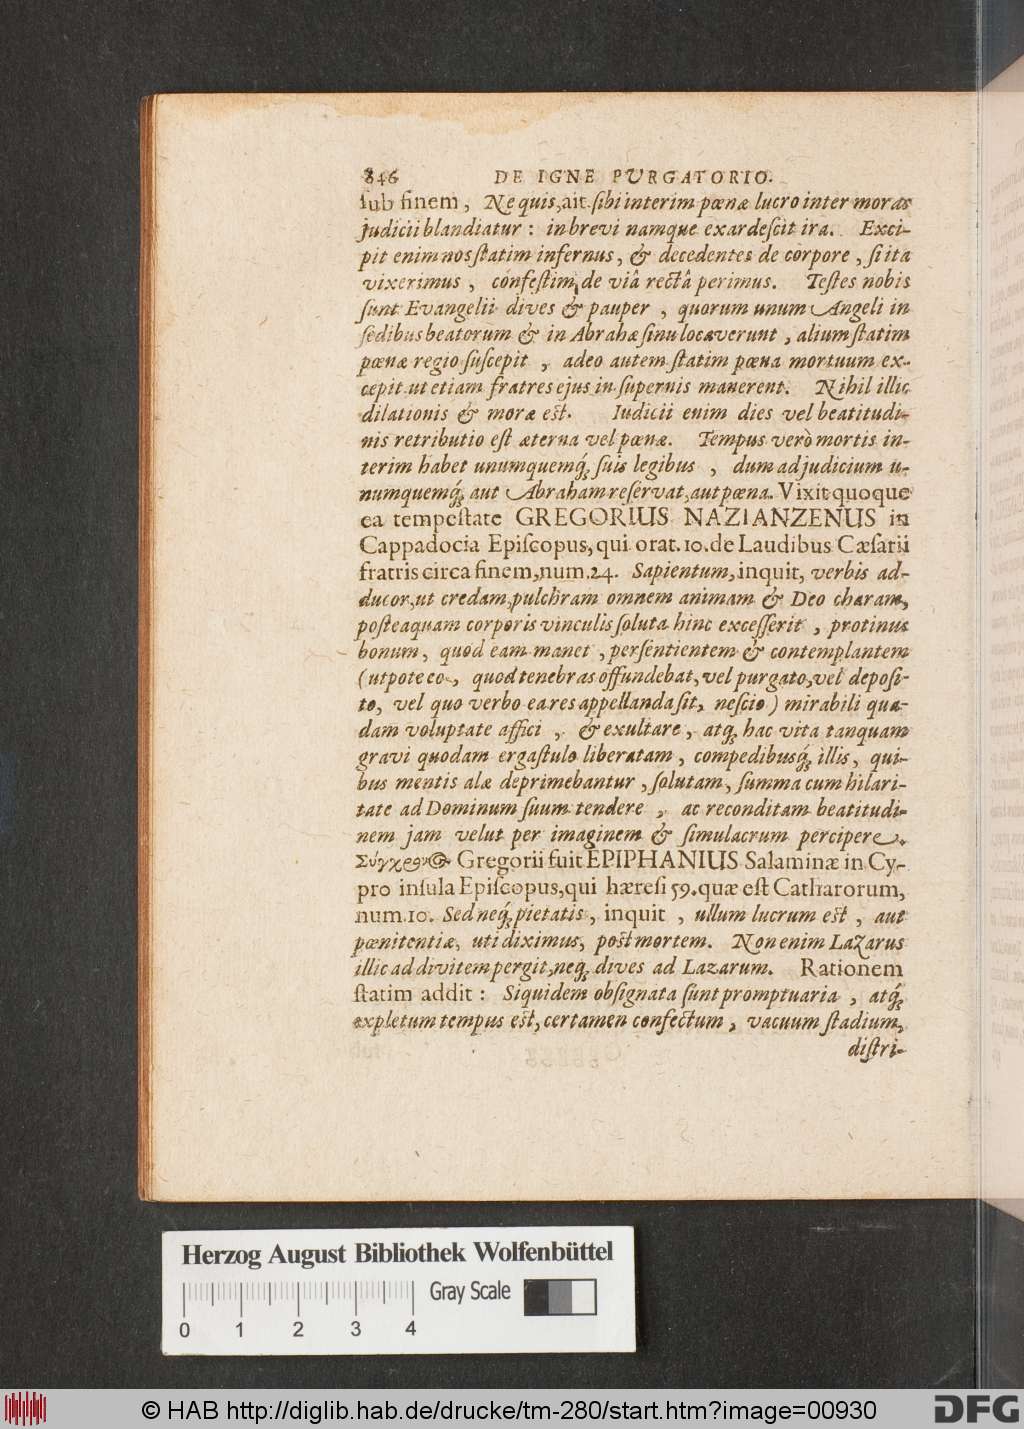 846 DE IGNE PURGATORIO.
ſub finem, Ne quis, ait. ſibi interim pœnæ lucro inter moras
judicii blandiatur : in brevi namque exardeſcit ira. Exci-
pit enim nos ſtatim infernus, & decedentes de corpore, ſi ita
vixerimus, confeſtim de viâ rectâ perimus. Teſtes nobis
ſunt Evangelii dives & pauper, quorum unum Angeli in
ſedibus beatorum & in Abrahæ ſinu locaverunt, alium ſtatim
pœnæ regio ſuſcepit, adeo autem ſtatim pœna mortuum ex-
cepit ut etiam fratres ejus in ſupernis manerent. Nihil illic
dilationis & moræ eſt. Iudicii enim dies vel beatitudi-
nis retributio eſt æterna vel pœnæ. Tempus verò mortis in-
terim habet unumquemq́; ſuis legibus, dum ad judicium u-
numquemq́; aut Abraham reſervat, aut pœna. Vixit quoque
ea tempeſtate GREGORIUS NAZIANZENUS in
Cappadocia Epiſcopus, qui orat. 10. de Laudibus Cæſarii
fratris circa finem, num. 24. Sapientum, inquit, verbis ad-
ducor, ut credam, pulchram omnem animam & Deo charam,
poſteaquam corporis vinculis ſoluta hinc exceſſerit, protinus
bonum, quod eam manet, perſentientem & contemplantem
(utpote eo, quod tenebras offundebat, vel purgato, vel depoſi-
to, vel quo verbo ea res appellanda ſit, neſcio) mirabili qua-
dam voluptate affici, & exultare, atq́; hac vita tanquam
gravi quodam ergaſtulo liberatam, compedibusq́; illis, qui-
bus mentis alæ deprimebantur, ſolutam, ſumma cum hilari-
tate ad Dominum ſuum tendere, ac reconditam beatitudi-
nem jam velut per imaginem & ſimulacrum percipere.
Σύγχρονος Gregorii fuit EPIPHANIUS Salaminæ in Cy-
pro inſula Epiſcopus, qui hæreſi 59. quæ eſt Catharorum,
num. 10. Sed neq́; pietatis, inquit, ullum lucrum eſt, aut
pœnitentiæ, uti diximus, poſt mortem. Non enim Lazarus
illic ad divitem pergit, neq́; dives ad Lazarum. Rationem
ſtatim addit : Siquidem obſignata ſunt promptuaria, atq́;
expletum tempus eſt, certamen confectum, vacuum ſtadium,
diſtri-
Herzog August Bibliothek Wolfenbüttel
Gray Scale
0 1 2 3 4
© HAB http://diglib.hab.de/drucke/tm-280/start.htm?image=00930
DFG